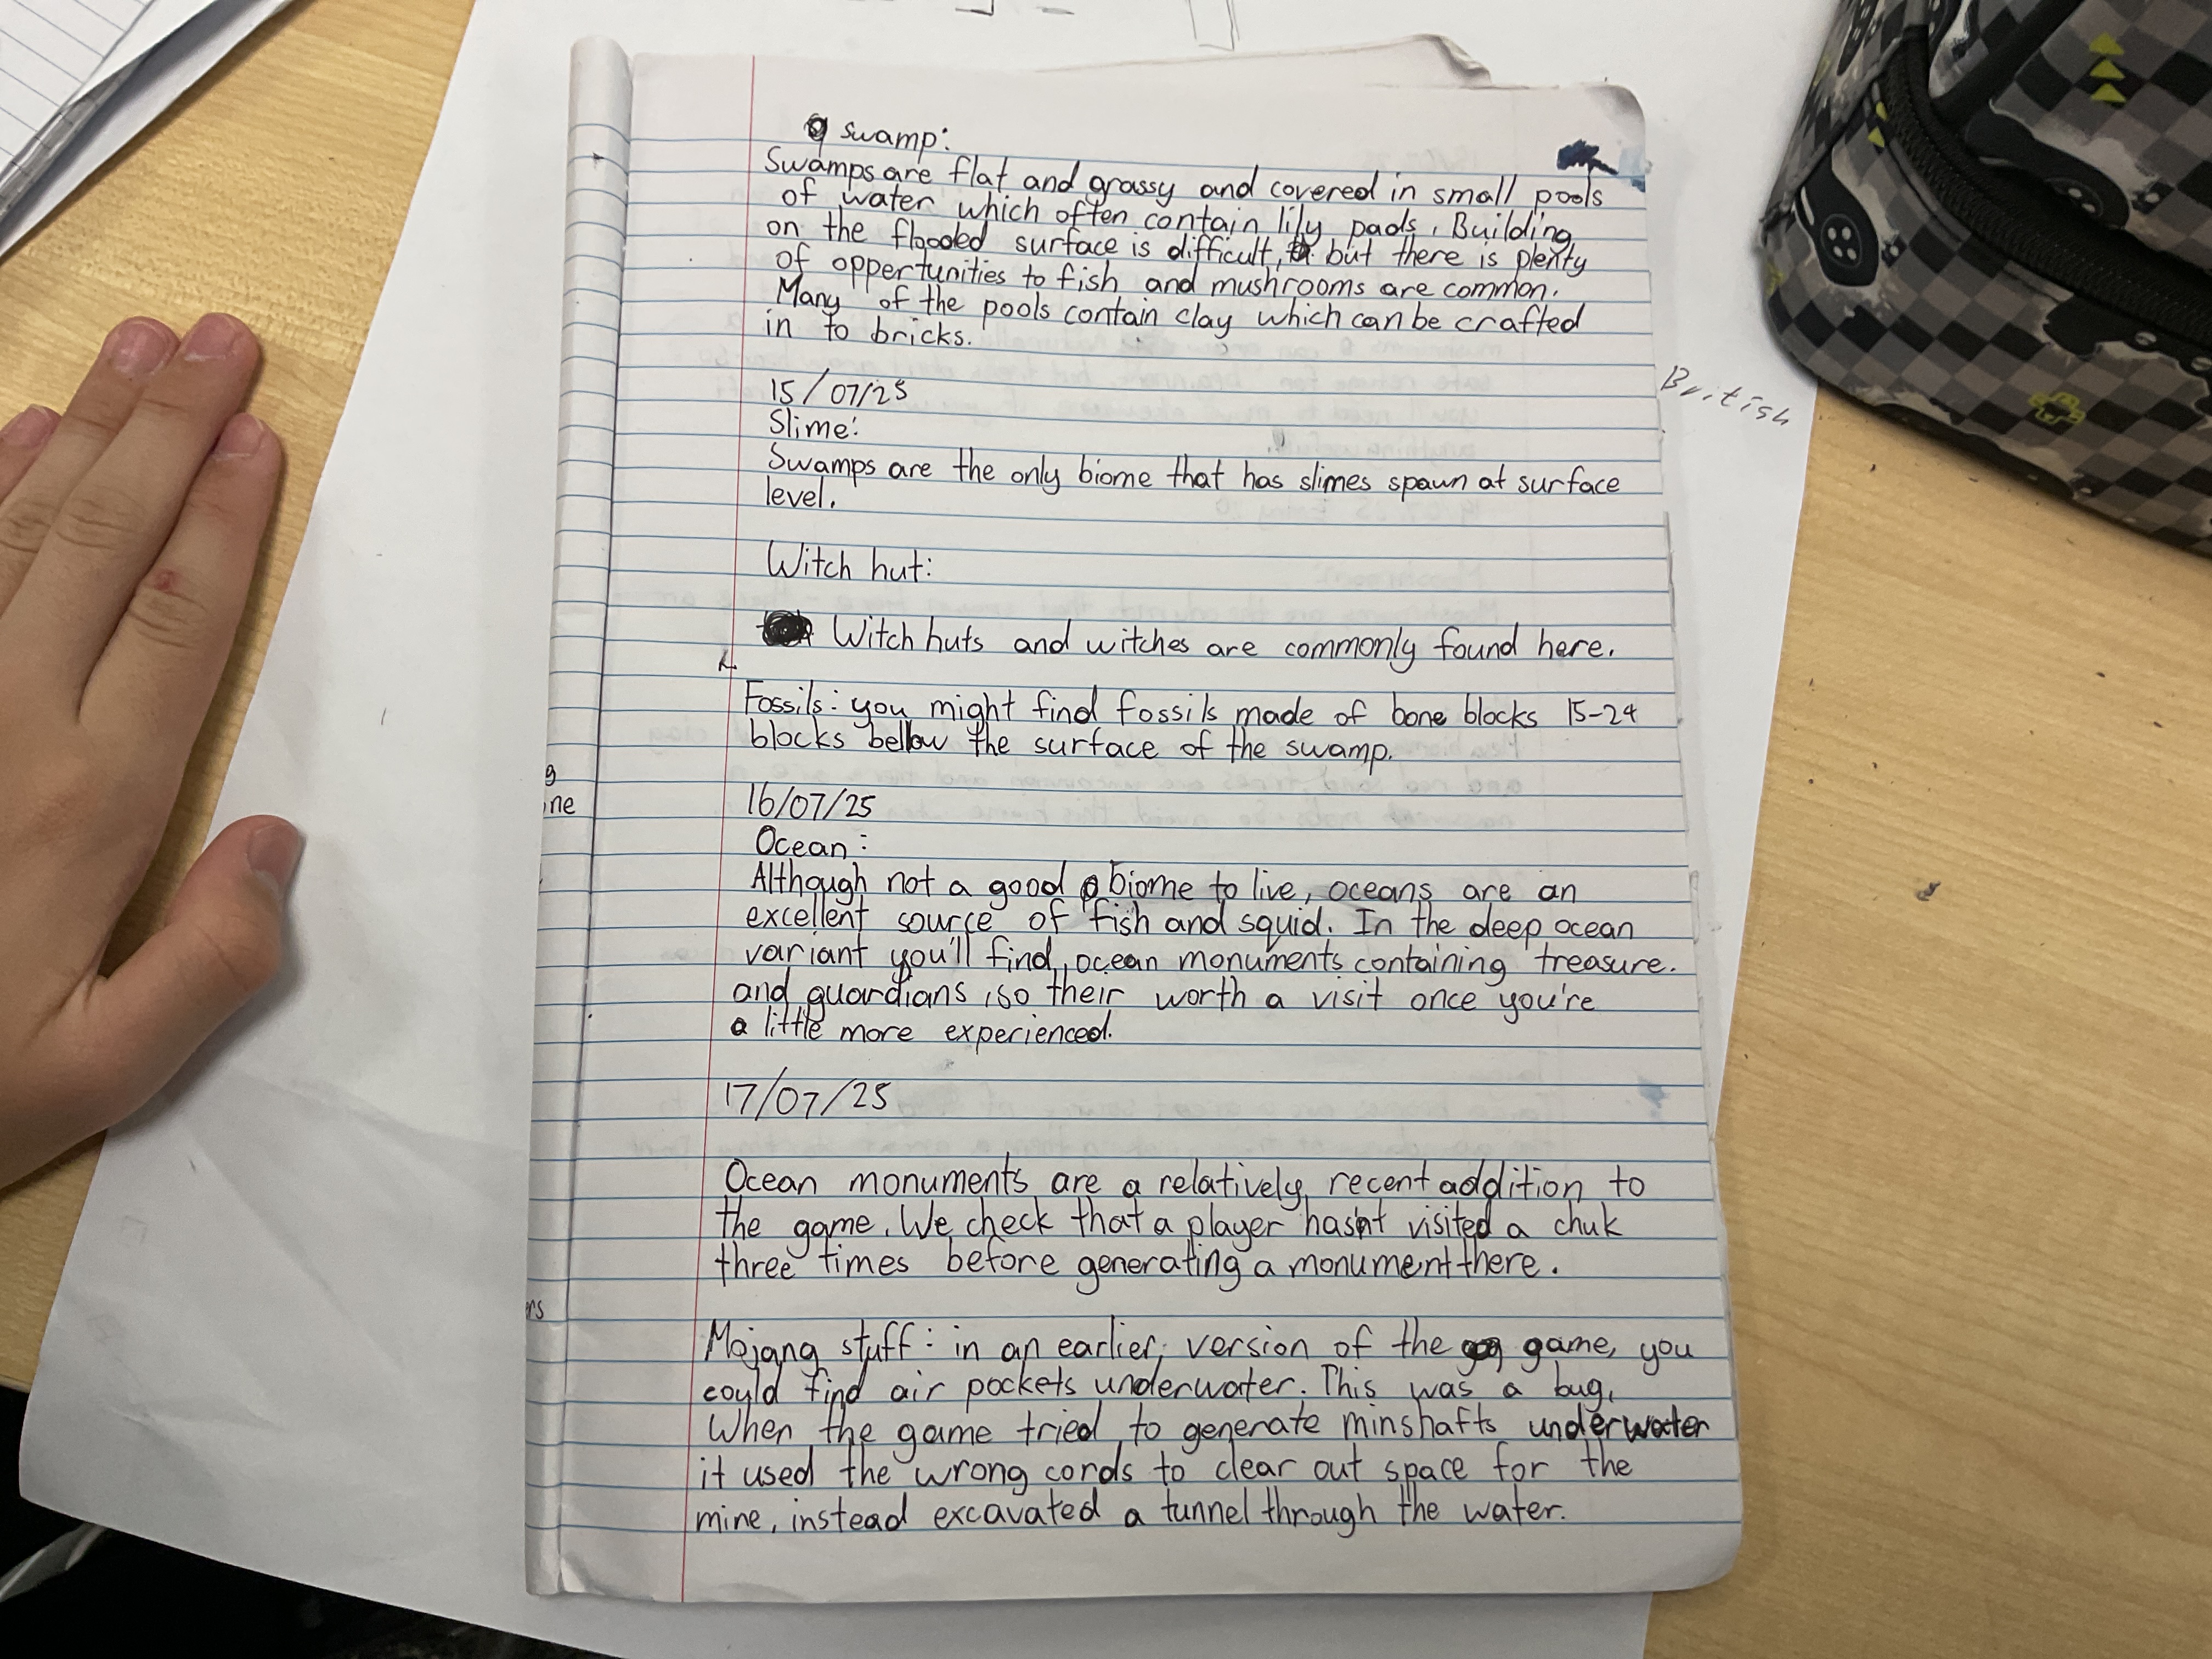 swamp:
Swamps are flat and grassy and covered in small pools
of water which often contain lily pads. Building
on the flooded surface is difficult, but there is plenty
of oppertunities to fish and mushrooms are common.
Many of the pools contain clay which can be crafted
in to bricks.
15/07/25
Slime:
Swamps are the only biome that has slimes spawn at surface
level.
Witch hut:
Witch huts and witches are commonly found here.
Fossils: you might find fossils made of bone blocks 15-24
blocks bellow the surface of the swamp.
16/07/25
Ocean:
Although not a good biome to live, oceans are an
excellent source of fish and squid. In the deep ocean
variant you'll find, ocean monuments containing treasure.
and guardians, so their worth a visit once you're
a little more experienced.
17/07/25
Ocean monuments are a relatively recent addition to
the game. We check that a player hasn't visited a chuk
three times before generating a monument there.
Mojang stuff: in an earlier, version of the game, you
could find air pockets underwater. This was a bug,
When the game tried to generate minshafts underwater
it used the wrong cords to clear out space for the
mine, instead excavated a tunnel through the water.
British
g
ine
ers